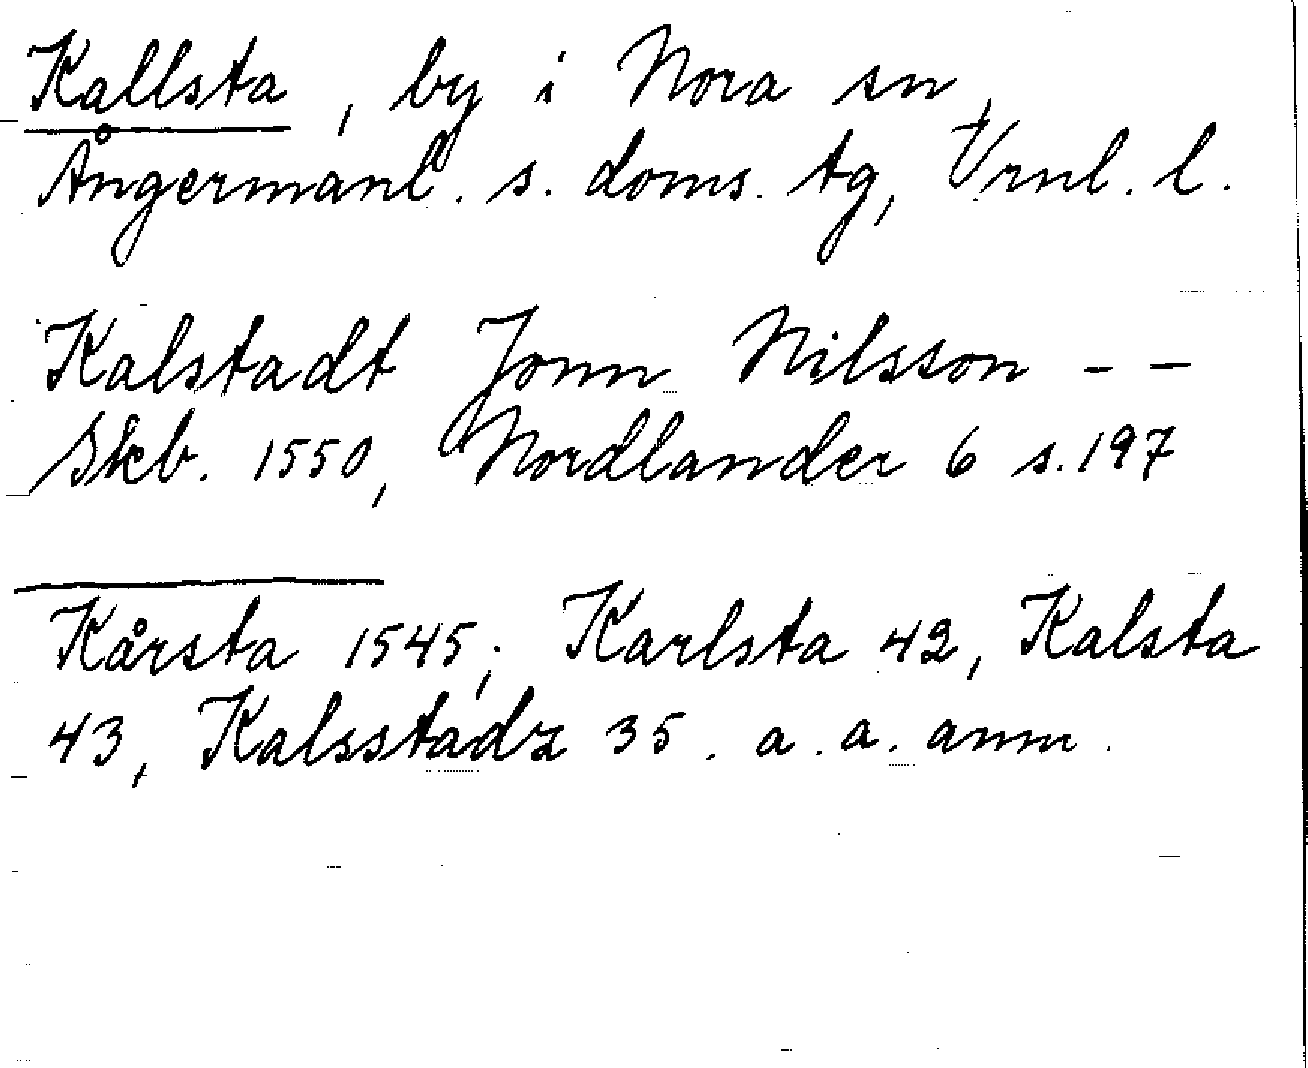 Kallsta, by i Nora sn,
Ångermanl. s. doms. tg, Vrnl. l.
Kalstadt Jonn Nilsson - -
Skb. 1550, Nordlander 6 s. 197
Kårsta 1545; Karlsta 42, Kalsta
43, Kalsstadz 35. a. a. anm.